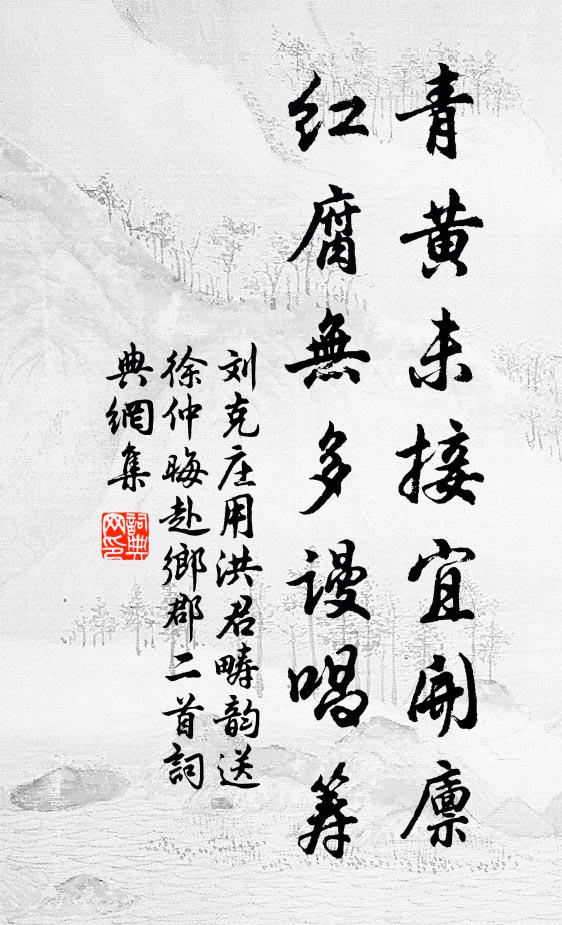 青黃未接宜開廪
紅腐無多謾唱筹
刘克庄用洪君畴韵送
徐仲晦赴鄉郡二首詞
典網集
詞典网印